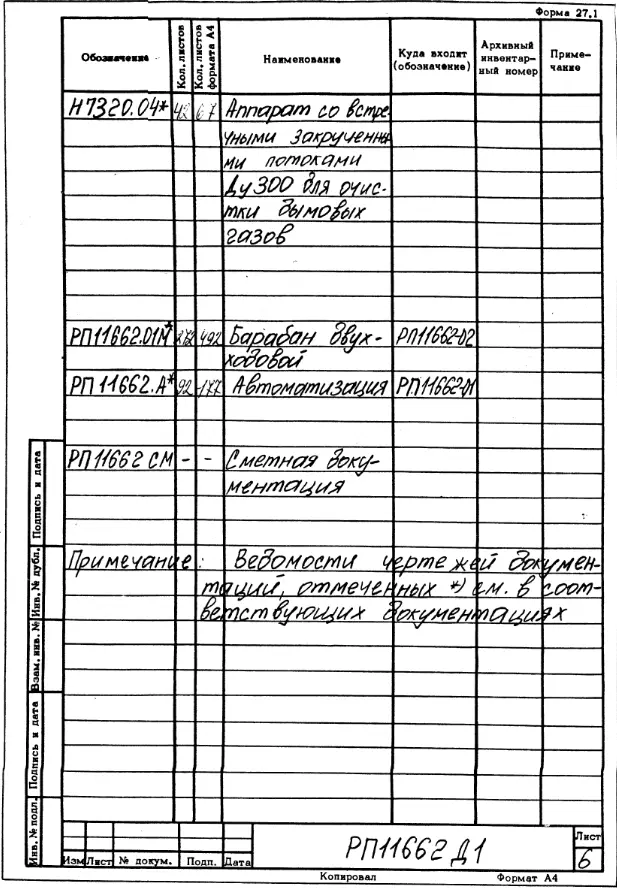 Форма 27.1
Обозначение
Кол. листов
Кол. листов формата А4
Наименование
Куда входит
(обозначение)
Архивный
инвентар-
ный номер
Приме-
чание
Н7320.04* 42 67 Аппарат со встре-
чными закрученны-
ми потоками
Ду300 для очис-
тки дымовых
газов
РП11662.01М* 272 492 Барабан двух- РП11662-02
ходовой
РП11662.А* 92 177 Автоматизация РП11662-01
РП11662 СМ - - Сметная доку-
ментация
Примечание: Ведомости чертежей докумен-
таций, отмеченных *) см. в соот-
ветствующих документациях
Подпись и дата
Инв. № дубл.
Взам. инв. №
Подпись и дата
Инв. № подл.
Изм Лист № докум. Подп. Дата
РП11662 Д1
Лист
6
Копировал Формат А4